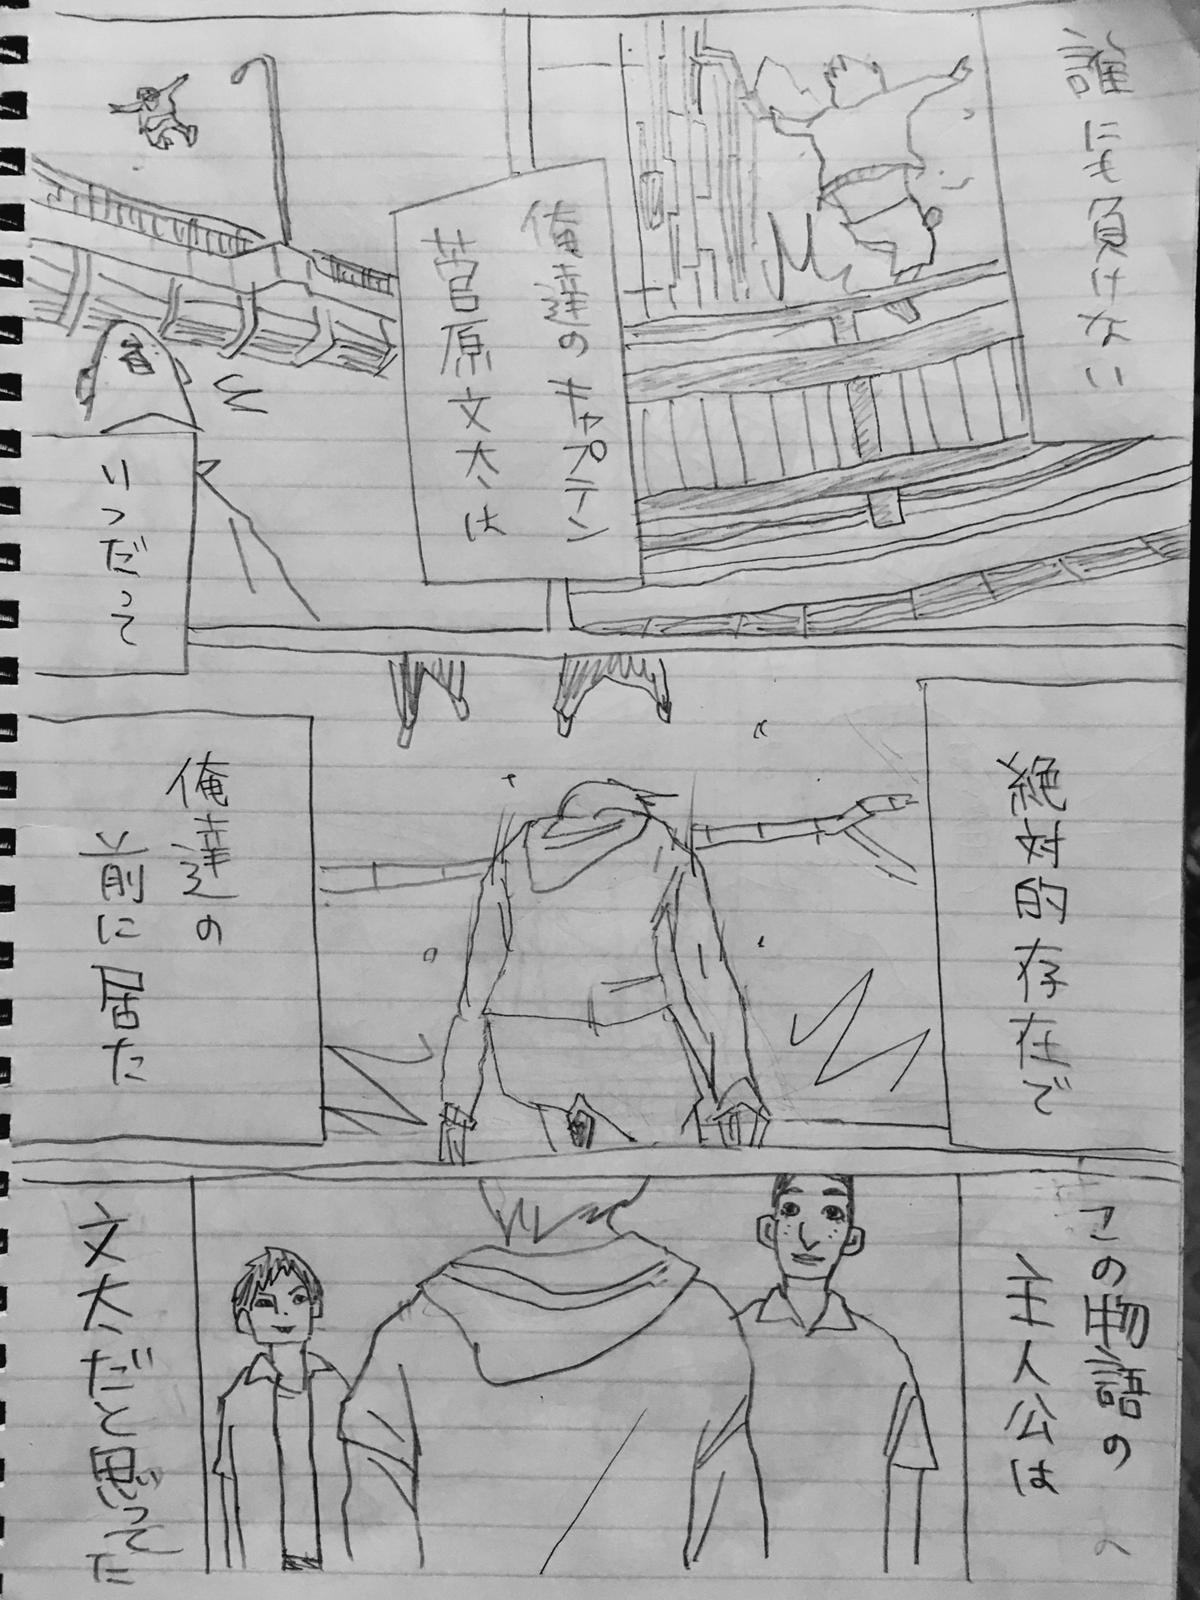 誰にも負けない
俺達のキャプテン
菅原文太は
いつだって
絶対的存在で
俺達の
前に居た
この物語の
主人公は
文太だと思ってた